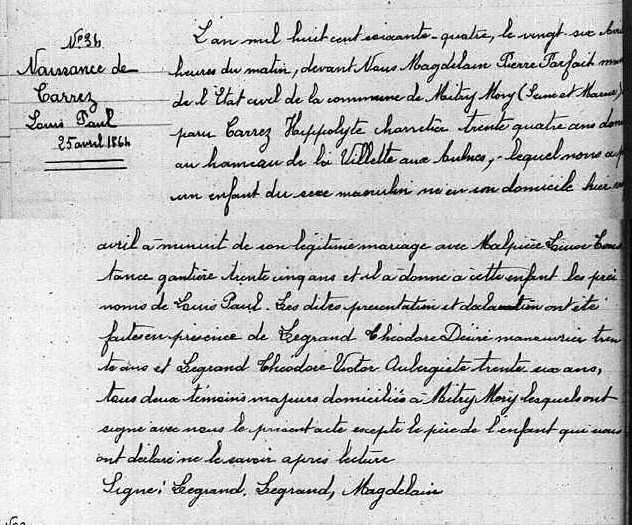 N°36
Naissance de
Carrez
Louis Paul
25 avril 1864
L'an mil huit cent soixante-quatre, le vingt-six Avril
heures du matin, devant Nous Magdelain Pierre Parfait
de l'Etat civil de la commune de Mitry Mory (Seine et Marne)
paru Carrez Hippolyte charretier trente quatre ans dom
au hameau de la Villette aux Aulnes, lequel nous a
un enfant du sexe masculin né en son domicile hier
avril à minuit de son légitime mariage avec Malpièce Louise Cons
tance gantière trente cinq ans et il a donné à cette enfant les pré
noms de Louis Paul. Les dites présentation et déclaration ont été
faites en présence de Legrand Théodore Désiré manouvrier tren
te ans et Legrand Théodore Victor Aubergiste trente six ans,
tous deux témoins majeurs domiciliés à Mitry Mory lesquels ont
signé avec nous le présent acte excepté le père de l'enfant qui nous
ont déclaré ne le savoir après lecture
Signé: Legrand, Legrand, Magdelain